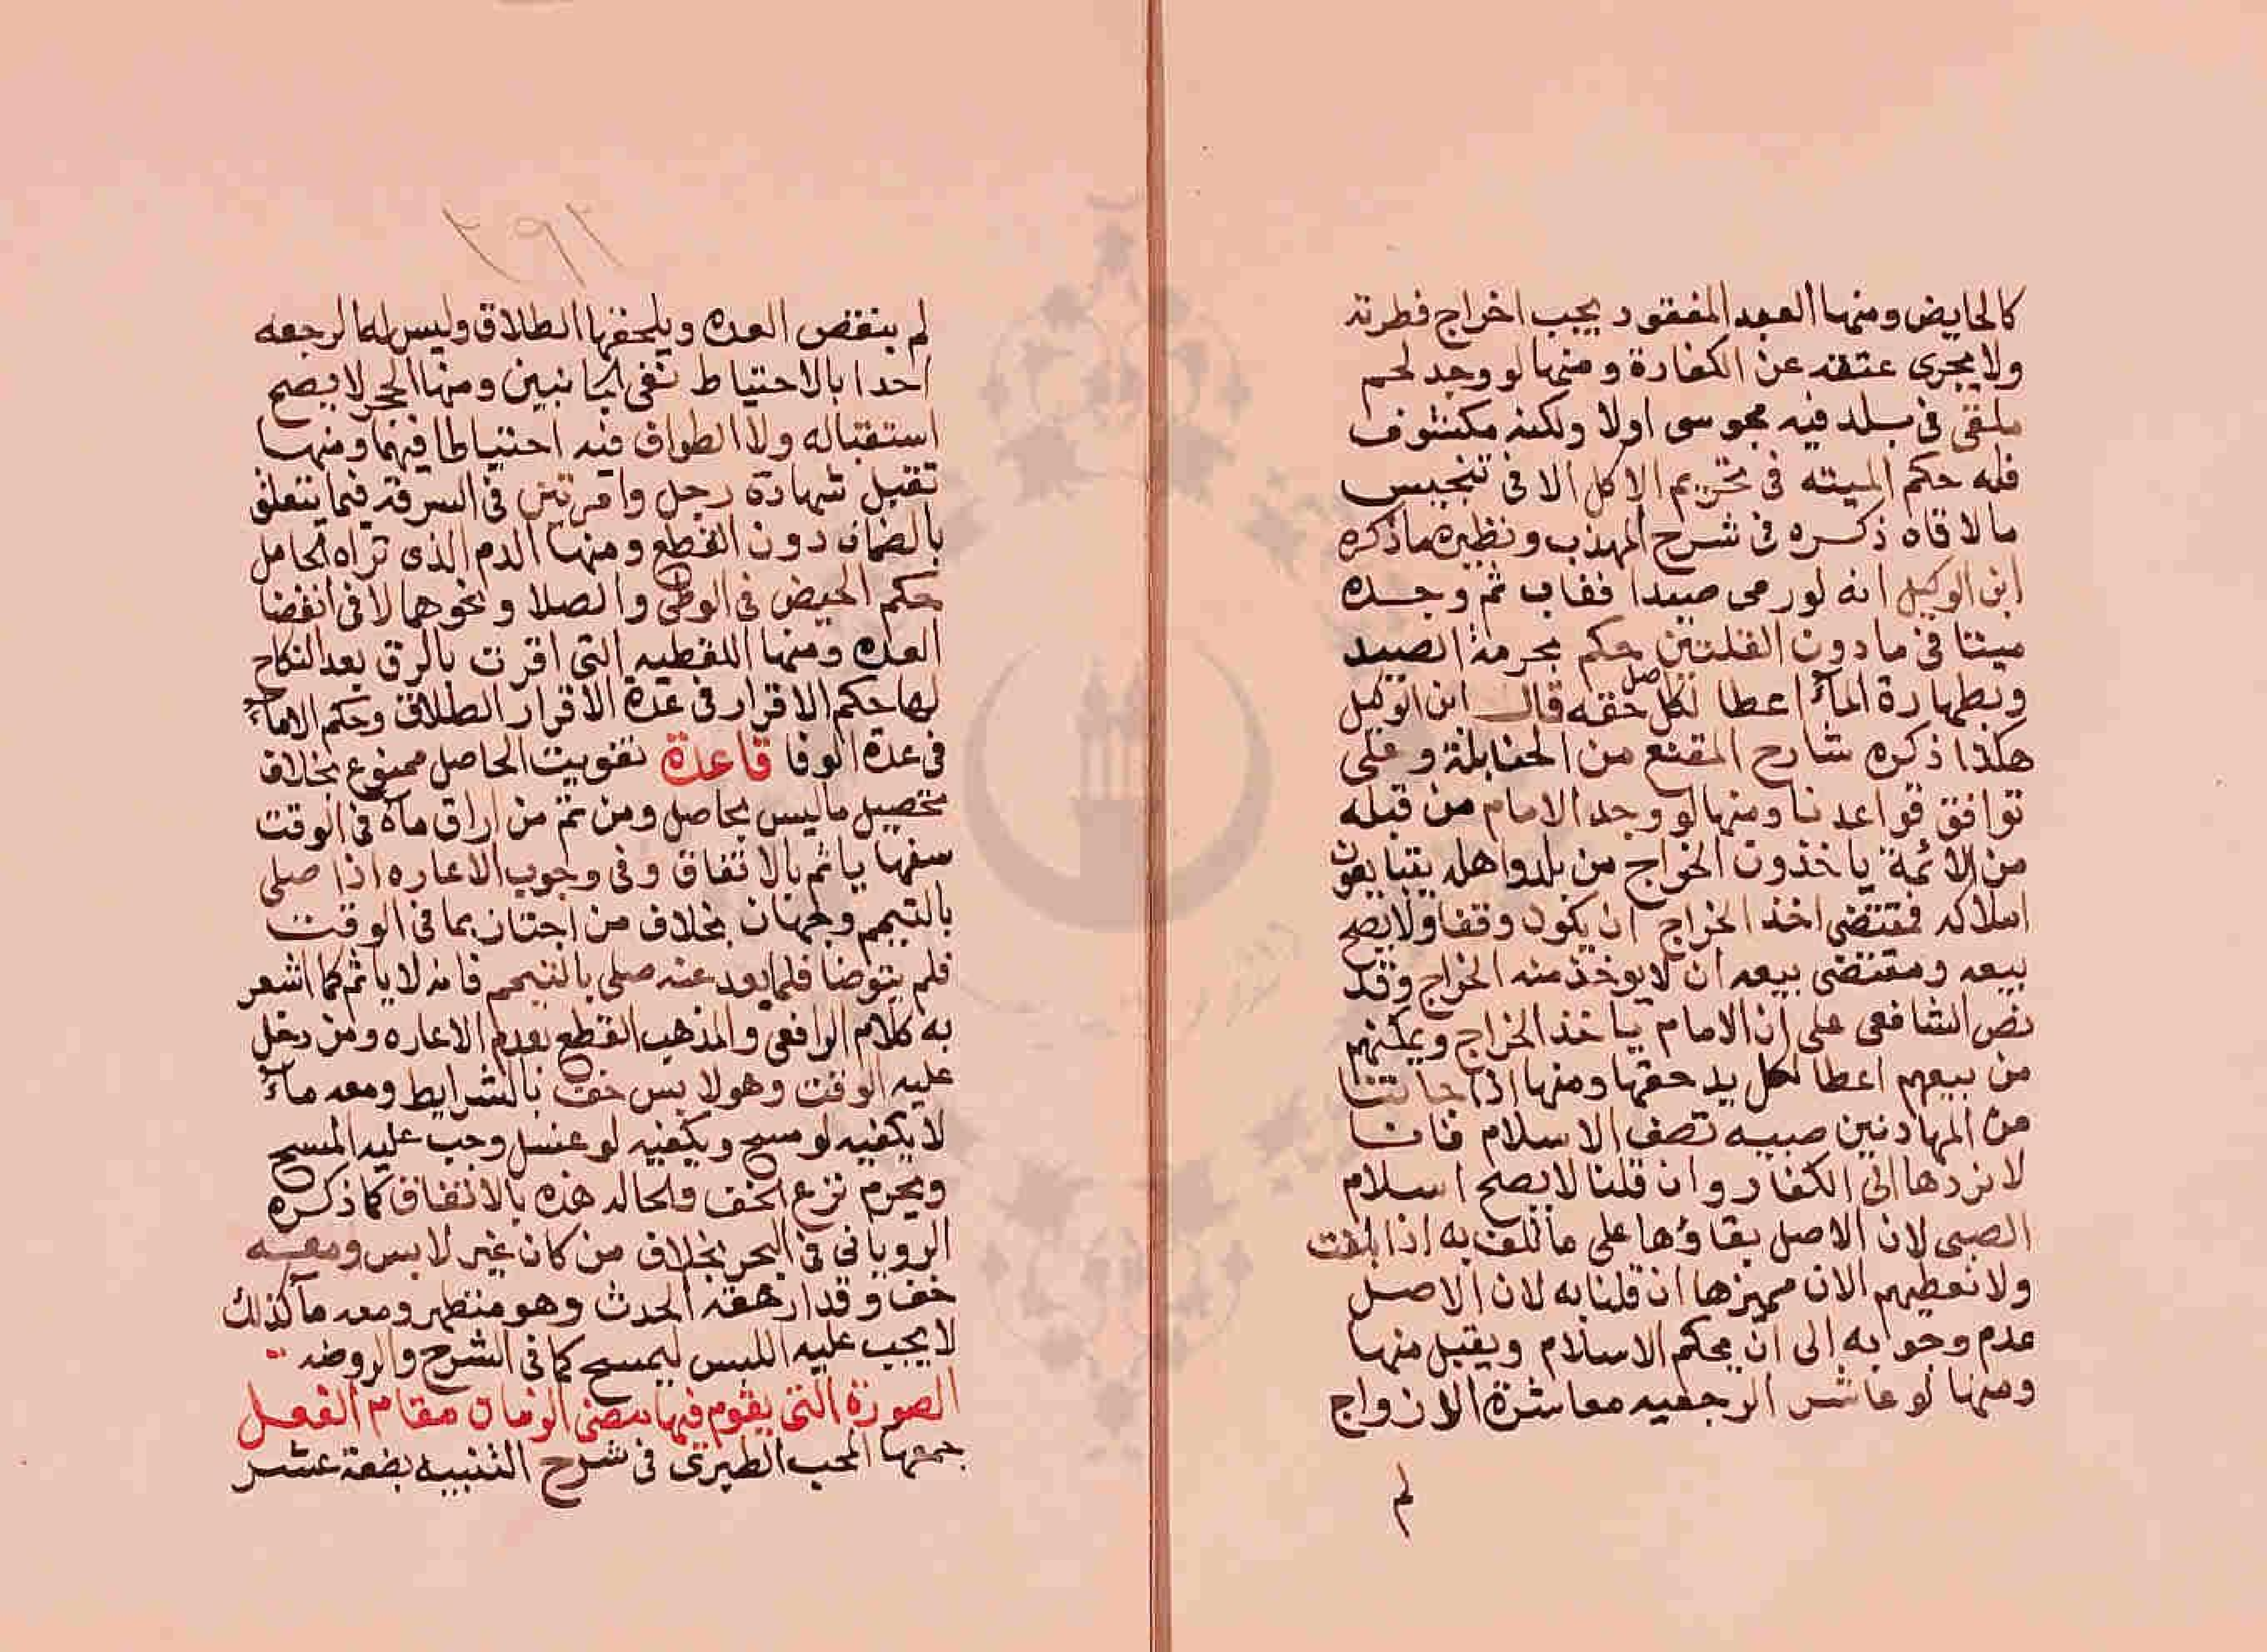 كالحايض ومنها العبد المفقود يجب اخراج فطرته
ولا يجزى عتقه عن الكفارة ومنها لو وجد لحم
ملقى في بلد فيه مجوسى اولا ولكنه مكشوف
فله حكم الميته في تحريم الاكل الا في تنجيس
ما لاقاه ذكره في شرح المهذب ونظيره ماذكره
ابن الوكيل انه لو رمى صيدا فغاب ثم وجده
ميتا في ما دون القلتين حكم بحرمة الصيد
وبطهارة الماء اعطا لكل اصل حقه قال ابن الوكيل
هكذا ذكره شارح المقنع من الحنابلة وعلى
توافق قواعدنا ومنها لو وجد الامام من قبله
من الائمة ياخذون الخراج من بلد واهله يتبايعون
املاكه فمقتضى اخذ الخراج ان يكون وقفا ولا يصح
بيعه ومقتضى بيعه ان لا يوخذ منه الخراج وقد
نص الشافعى على ان الامام ياخذ الخراج ويمكنهم
من بيعهم اعطا لكل يد حقها ومنها اذا جاتنا
من المهادنين صبيه تصف الاسلام فانا
لا نردها الى الكفار وان قلنا لا يصح اسلام
الصبى لان الاصل بقاؤها على ما تلف به اذا بلغت
ولا نعطيهم الان مهرها ان قلنا به لان الاصل
عدم وجوبه الى ان يحكم الاسلام ويقبل منها
ومنها لو عاشر الرجعيه معاشرة الازواج
لم
٢٩٢
لم ينقض العده ويلحقها الطلاق وليس له الرجعه
احدا بالاحتياط في الجانبين ومنها الحجر لا يصح
استقباله ولا الطواف فيه احتياطا فيهما ومنها
تقبل شهادة رجل وامرتين في السرقة فيما يتعلق
بالضمان دون القطع ومنها الدم الذى تراه الحامل
حكم الحيض في الوطئ والصلا ونحوها لا في انقضا
العده ومنها اللقطيه التى اقرت بالرق بعد النكاح
لها حكم الاقرار في عدة الاقرار الطلاق وحكم الاماء
في عدة الوفا قاعدة تفويت الحاصل ممنوع بخلاف
تحصيل ماليس بحاصل ومن ثم من اراق ماة في الوقت
سفها ياثم بالاتفاق وفى وجوب الاعاره اذا صلى
بالتيمم وجهان بخلاف من اجتاز بما في الوقت
فلم يتوضا فلما بعد عنه صلى بالتيمم فانه لا ياثم كما اشعر
به كلام الرافعى والمذهب القطع بعدم الاعاره ومن دخل
عليه الوقت وهو لابس خف بالشرايط ومعه ماء
لا يكفيه لو مسح ويكفيه لو غسل وجب عليه المسح
ويحرم نزع الخف والحاله هذه بالاتفاق كما ذكره
الرويانى في البحر بخلاف من كان غير لابس ومعه
خف وقد ارهقه الحدث وهو متطهر ومعه ما كذلك
لا يجب عليه اللبس ليمسح كما في الشرح والروضه
الصورة التى يقوم فيها مضى الزمان مقام الفعل
جمعها المحب الطبرى في شرح التنبيه بضعة عشر